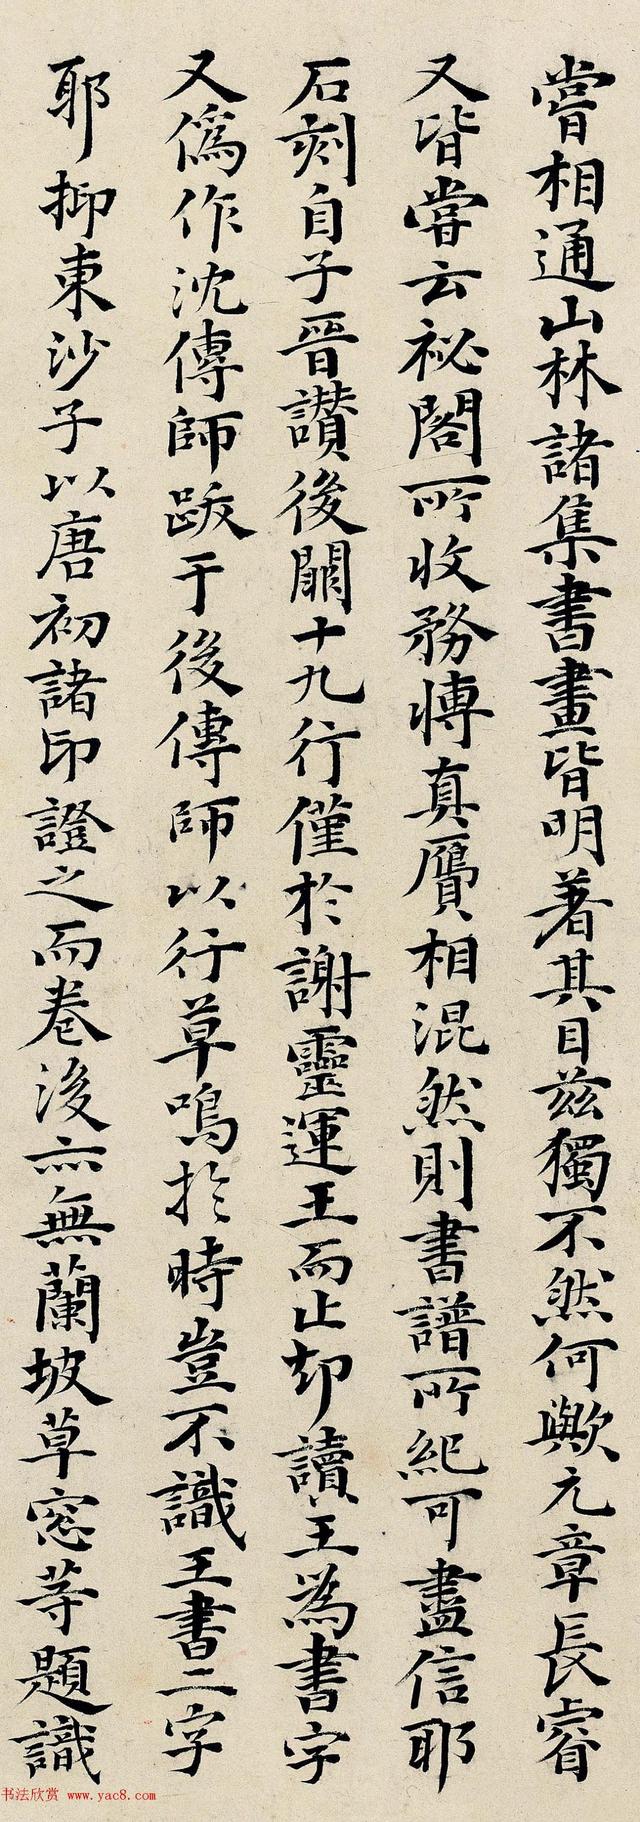 嘗相通山林諸集書畫皆明著其目茲獨不然何歟元章長睿
又皆嘗云祕閣所收務慱真贗相混然則書譜所紀可盡信耶
石刻自子晉讃後闕十九行僅於謝靈運王而止却讀王為書字
又偽作沈傳師跋于後傳師以行草鳴於時豈不識王書二字
耶抑東沙子以唐初諸印證之而卷後亦無蘭坡草窓等題識
书法欣赏 www.yac8.com